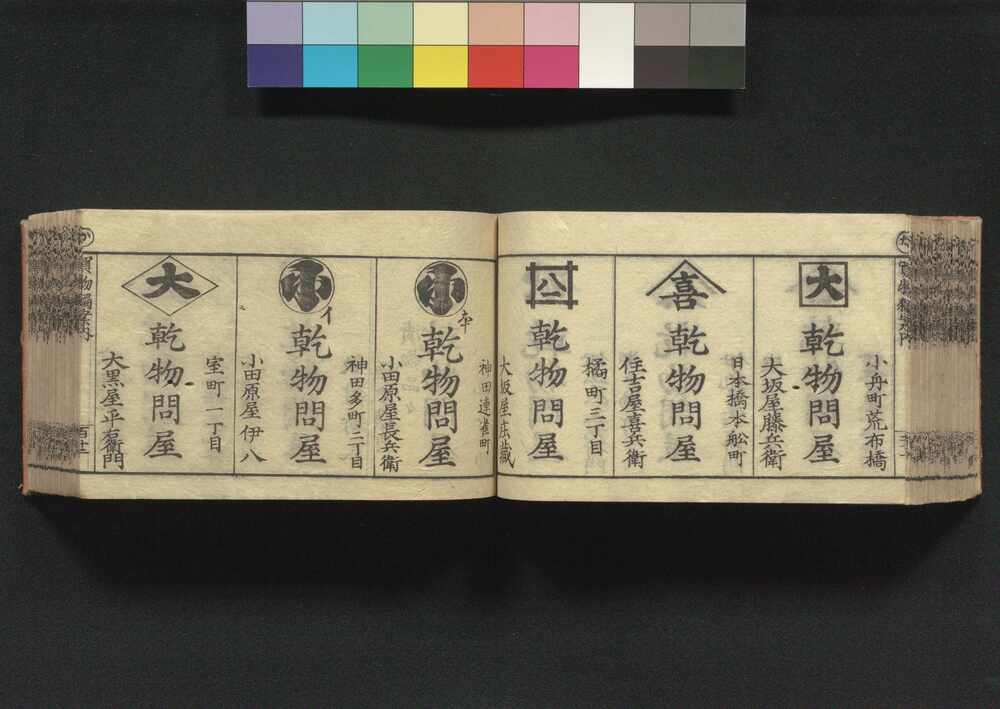 大
小舟町荒布橋
乾物問屋
大坂屋藤兵衛
喜
日本橋本舩町
乾物問屋
住吉屋喜兵衛
八
橘町三丁目
乾物問屋
大坂屋庄蔵
神田連雀町
乾物問屋
小田原屋長兵衛
イ
神田多町二丁目
乾物問屋
小田原屋伊八
大
室町一丁目
乾物問屋
大黒屋平右衛門
か